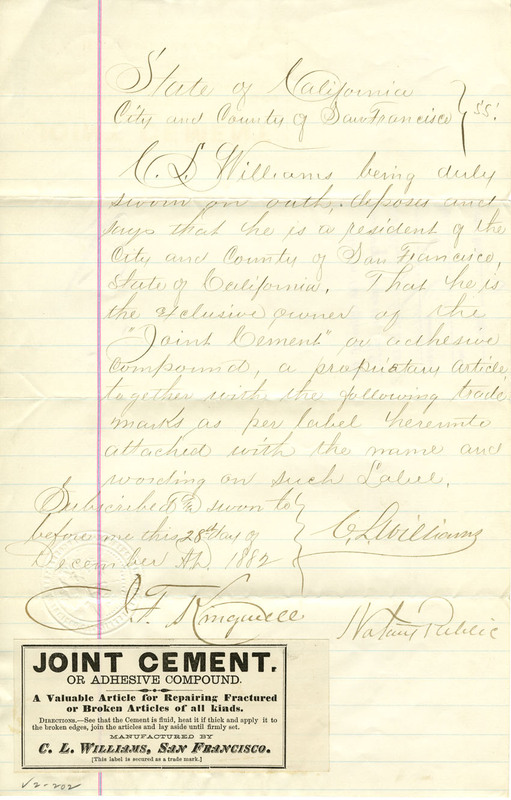 State of California
City and County of San Francisco } ss.
C. L. Williams being duly
sworn on oath, deposes and
says that he is a resident of the
City and County of San Francisco,
State of California. That he is
the exclusive owner of the
"Joint Cement" or adhesive
compound, a propriatary article
together with the following trade
marks as per label hereunto
attached with the name and
wording on such Label.
Subscribed & sworn to
before me this 28th day of
December A.D. 1882
C. L. Williams
J. F. Kingwell
Notary Public
JOINT CEMENT.
OR ADHESIVE COMPOUND.
A Valuable Article for Repairing Fractured
or Broken Articles of all kinds.
DIRECTIONS.—See that the Cement is fluid, heat it if thick and apply it to
the broken edges, join the articles and lay aside until firmly set.
MANUFACTURED BY
C. L. WILLIAMS, SAN FRANCISCO.
[This label is secured as a trade mark.]
V2-202